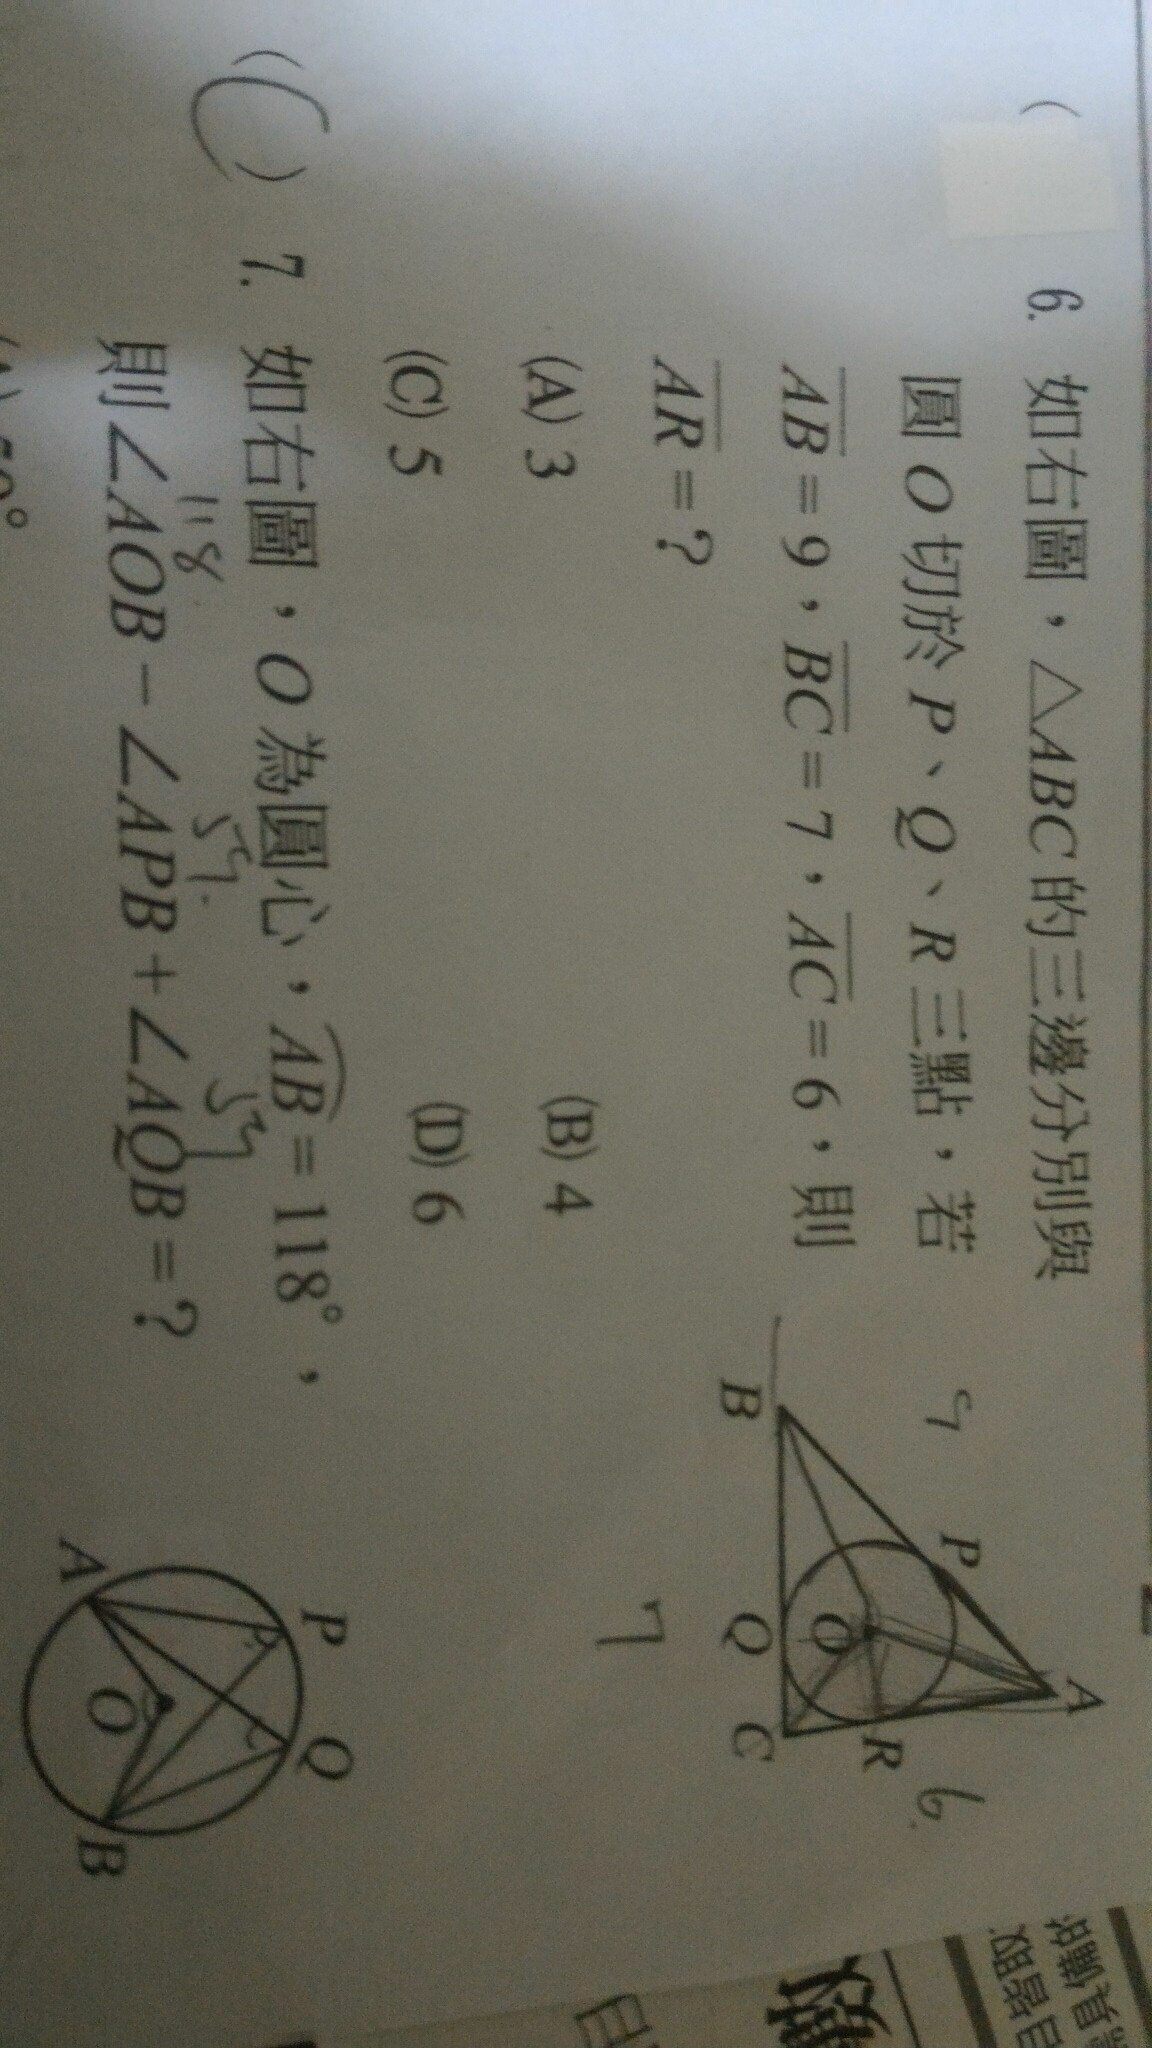 ( 6. 如右圖，△ABC 的三邊分別與
圓 O 切於 P、Q、R 三點，若
AB = 9，BC = 7，AC = 6，則
AR = ?
(A) 3 (B) 4
(C) 5 (D) 6
9
7
6.
A
P
B
O
Q
C
R
(C) 7. 如右圖，O 為圓心，AB = 118°，
118. 59. 59
則∠AOB − ∠APB + ∠AQB = ?
P
Q
A
O
B